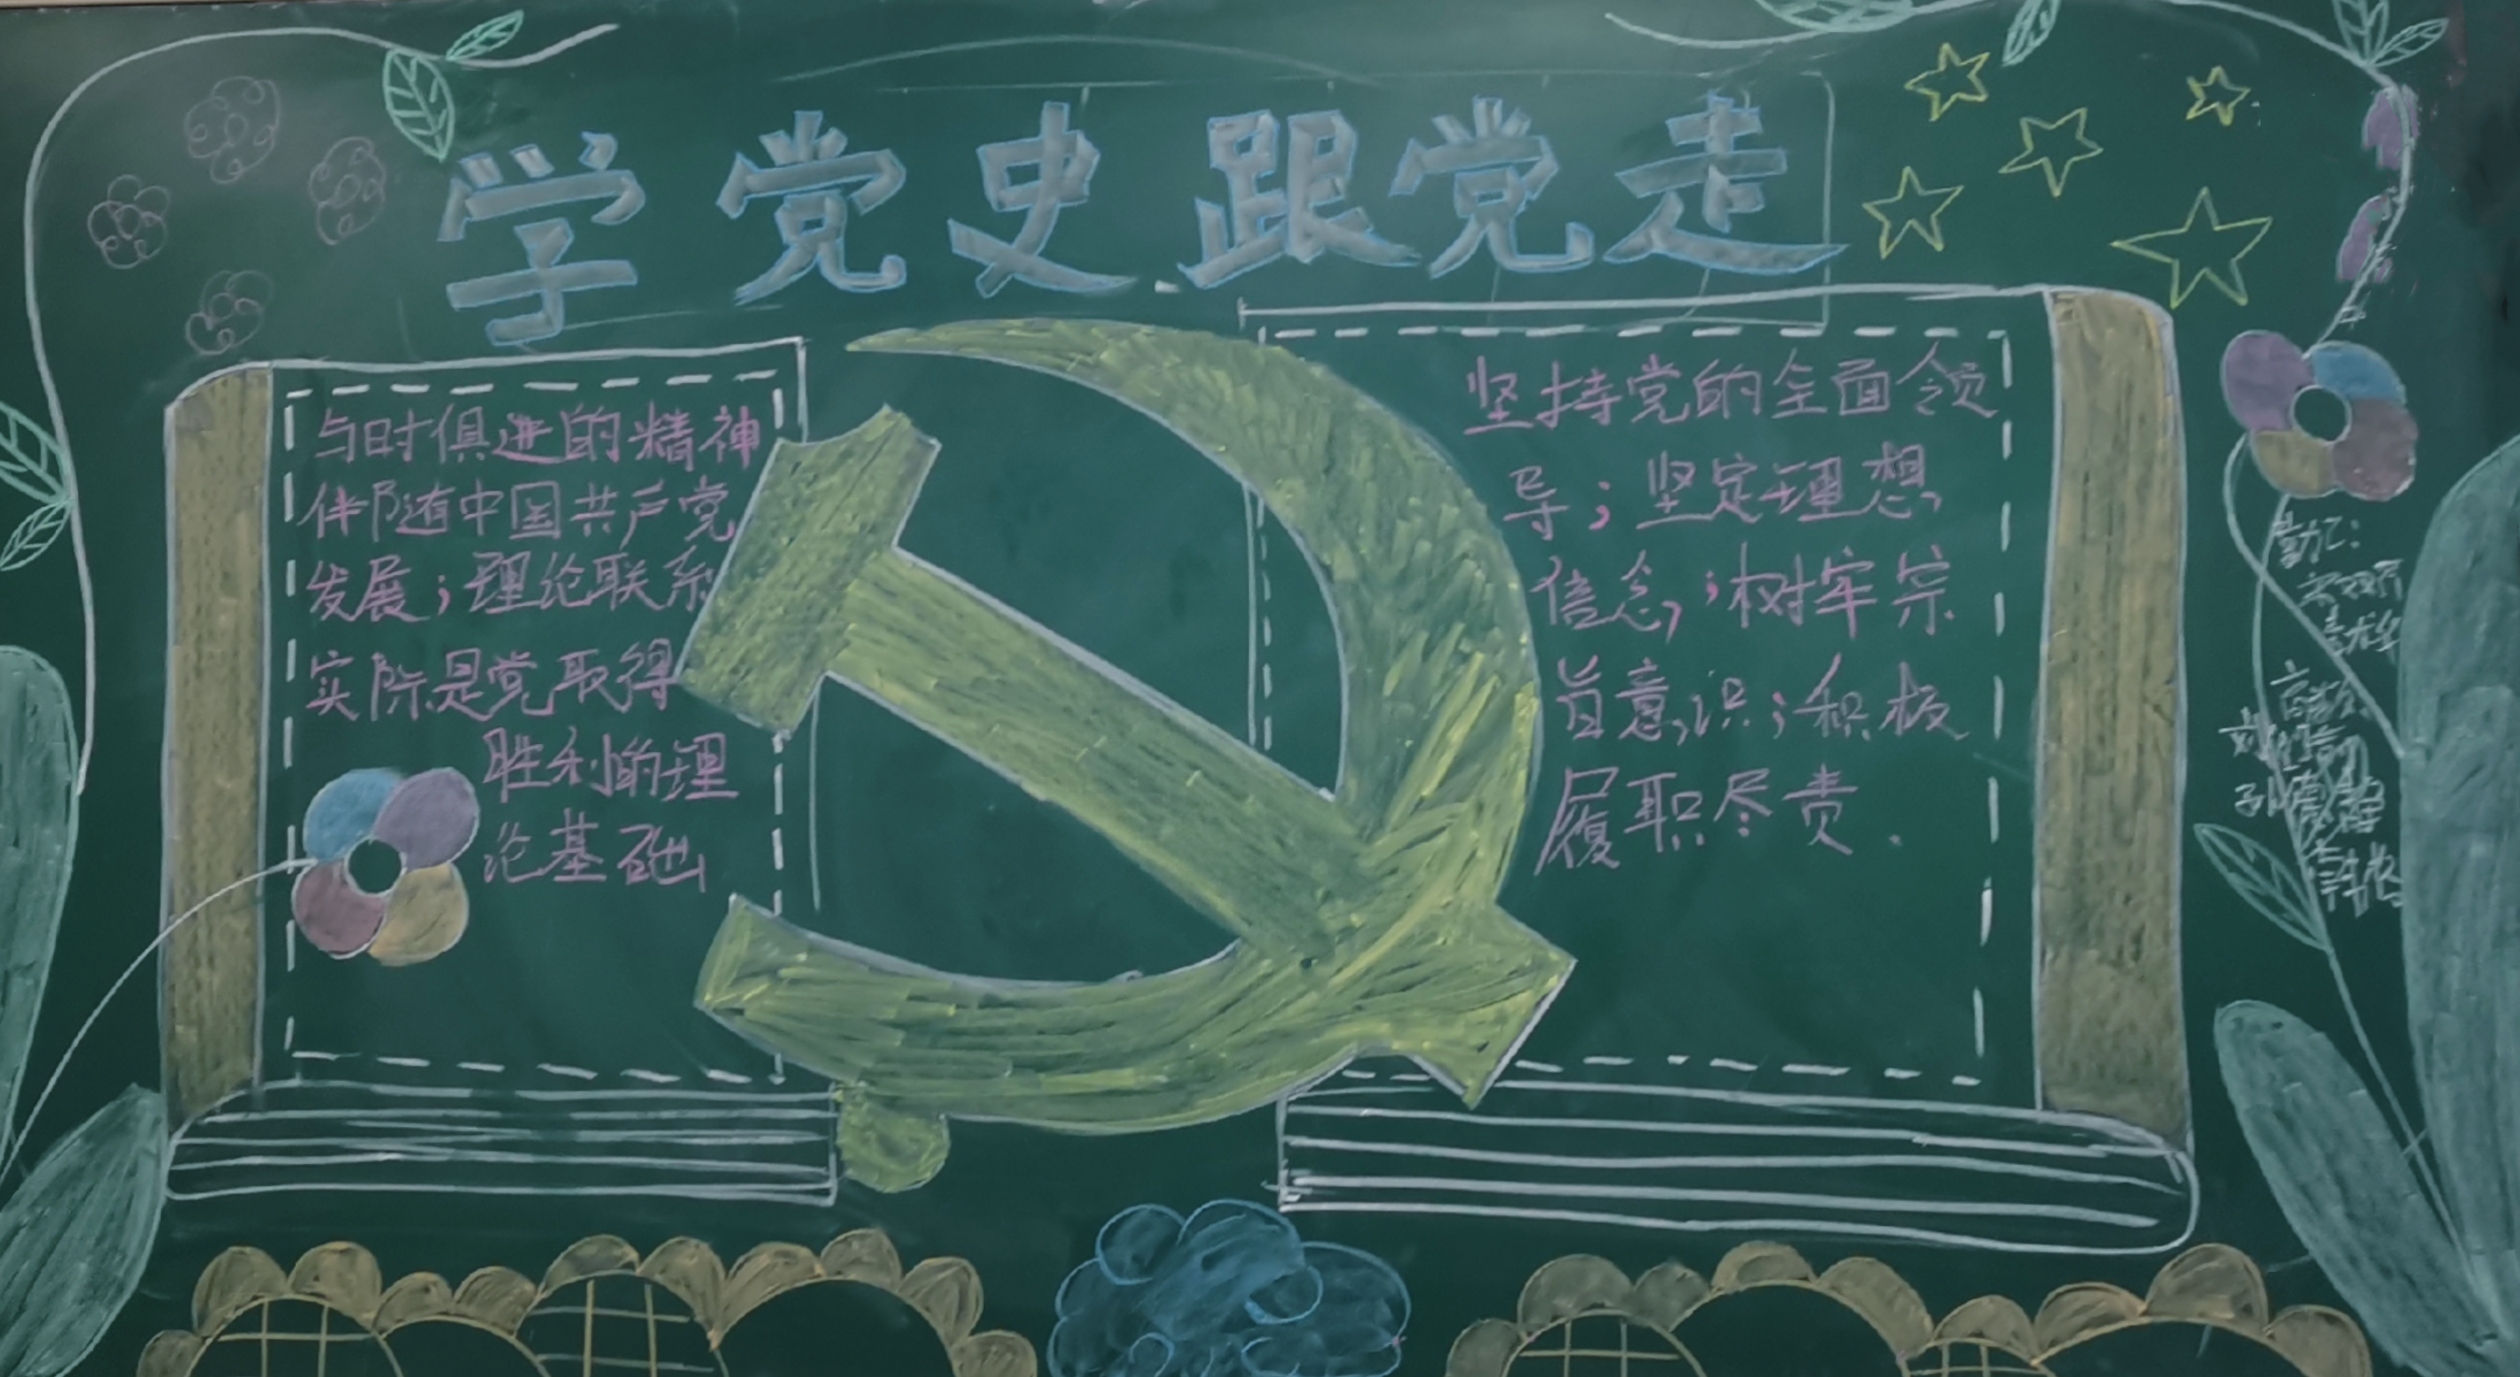 学党史跟党走
与时俱进的精神
伴随中国共产党
发展；理论联系
实际是党取得
胜利的理
论基础
坚持党的全面领
导；坚定理想
信念；树牢宗
旨意识；积极
履职尽责.